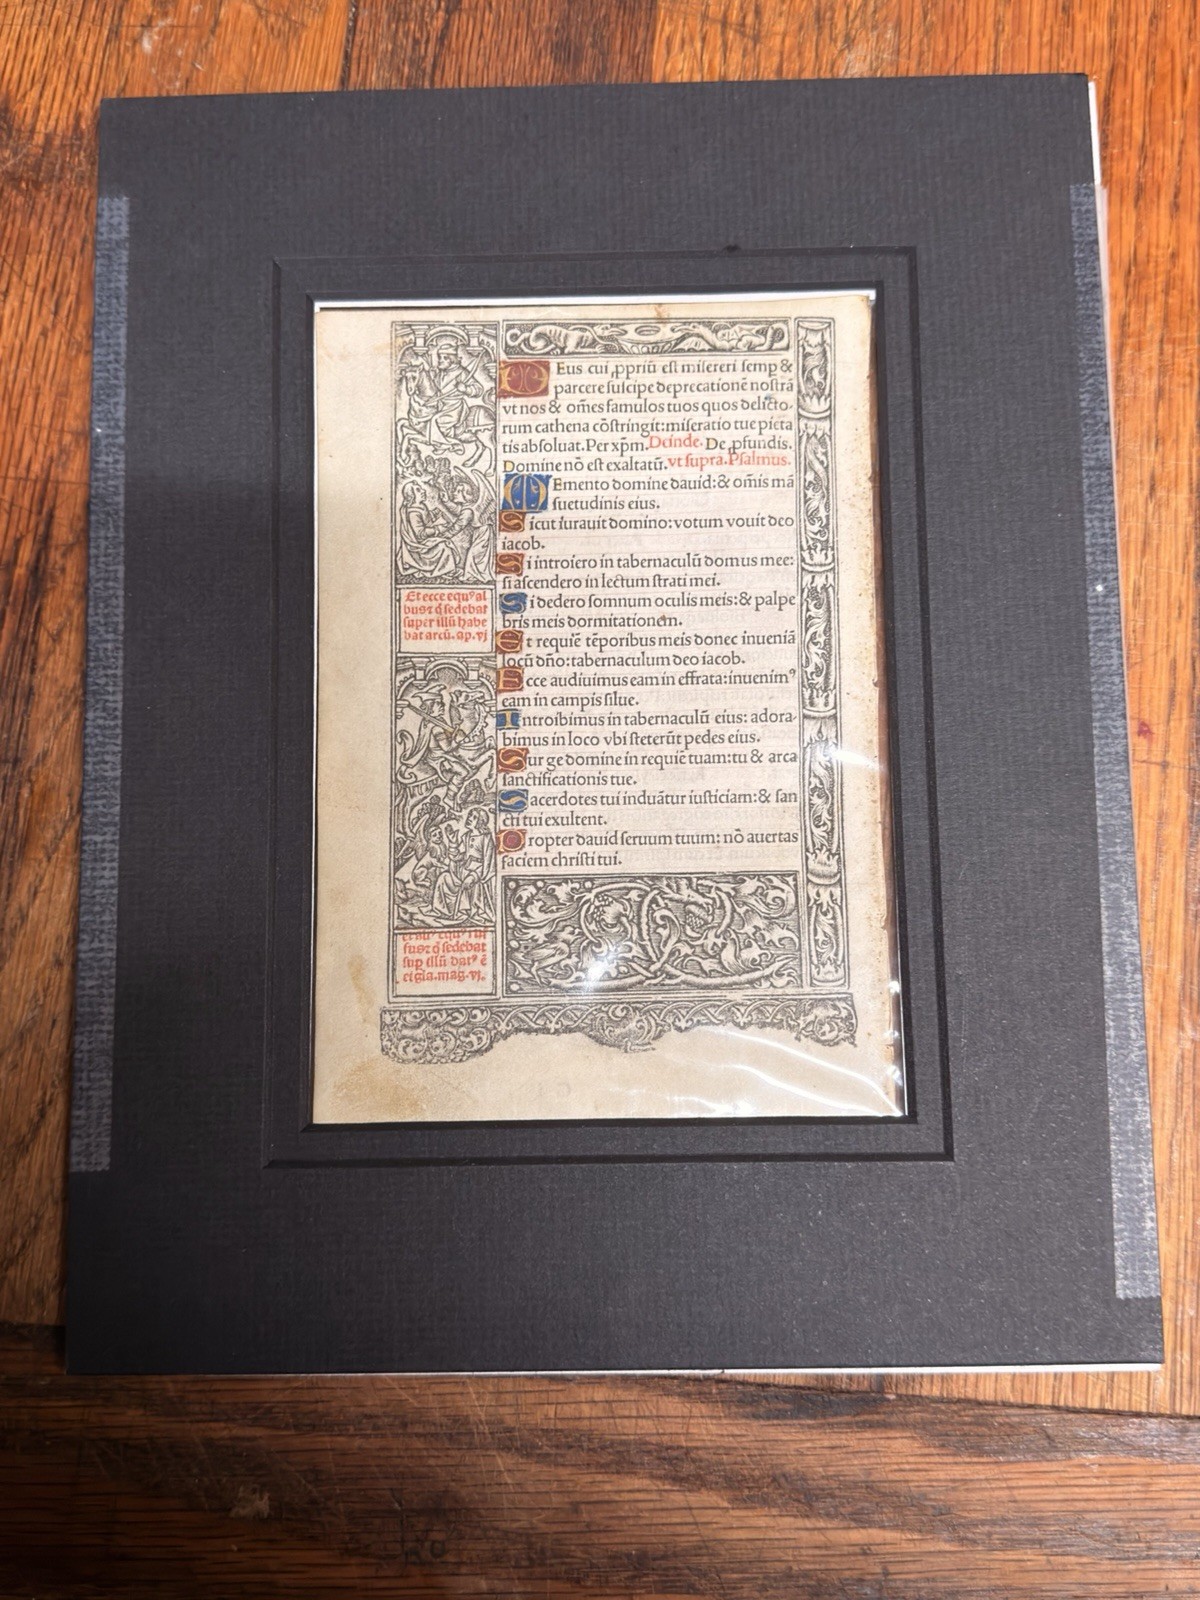 Eus cui ꝓpriū est misereri semp &
parcere suscipe deprecationē nostrā
vt nos & om̄es famulos tuos quos delicto-
rum cathena cōstringit: miseratio tue pieta
tis absoluat. Per xp̄m. Deinde. De ꝓfundis.
Domine nō est exaltatū. vt supra. Psalmus.
MEmento domine dauid: & om̄is mā
suetudinis eius.
Sicut iurauit domino: votum vouit deo
iacob.
Si introiero in tabernaculū domus mee:
si ascendero in lectum strati mei.
Si dedero somnum oculis meis: & palpe
bris meis dormitationem.
Et requiē tēporibus meis donec inueniā
locū dn̄o: tabernaculum deo iacob.
Ecce audiuimus eam in effrata: inuenimꝰ
eam in campis silue.
Introibimus in tabernaculū eius: adora-
bimus in loco vbi steterūt pedes eius.
Sur ge domine in requiē tuam: tu & arca
sanctificationis tue.
Sacerdotes tui induātur iusticiam: & san
cti tui exultent.
Propter dauid seruum tuum: nō auertas
faciem christi tui.
Et ecce equꝰ al
busꝛ q̄ sedebat
super illū habe
bat arcū. ap. vj
fusꝛ q̄ sedebat
sup illū datꝰ ē
ei gla. mag. vj.